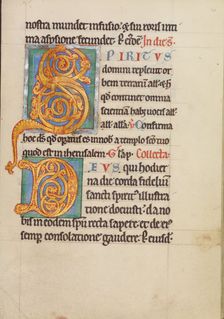 nostra mundet infusio; & sui roris inti
ma aspersione fecundet. P. eōdē. In die S.
PIRITUS
domini repleuit or
bem terrarū alla.
& hoc
quod continet omnia
scientiā habet uocis alla
alla. alla. Confirma
hoc ds quod operatus es in nobis a templo sco tuo
quod est in iherusalem. G la p. Collecta.
EUS, qui hodier
na die corda fidelium
sancti spiritus illustra
tione docuisti: da no
bis in eodem spiritu recta sapere et de ei
semper consolatione gaudere. P. eiusd.